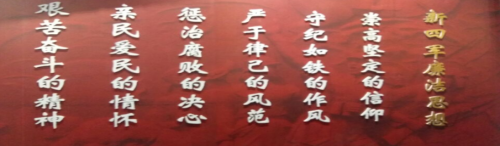 新四军廉洁思想
崇高坚定的信仰
守纪如铁的作风
严于律己的风范
惩治腐败的决心
亲民爱民的情怀
艰苦奋斗的精神